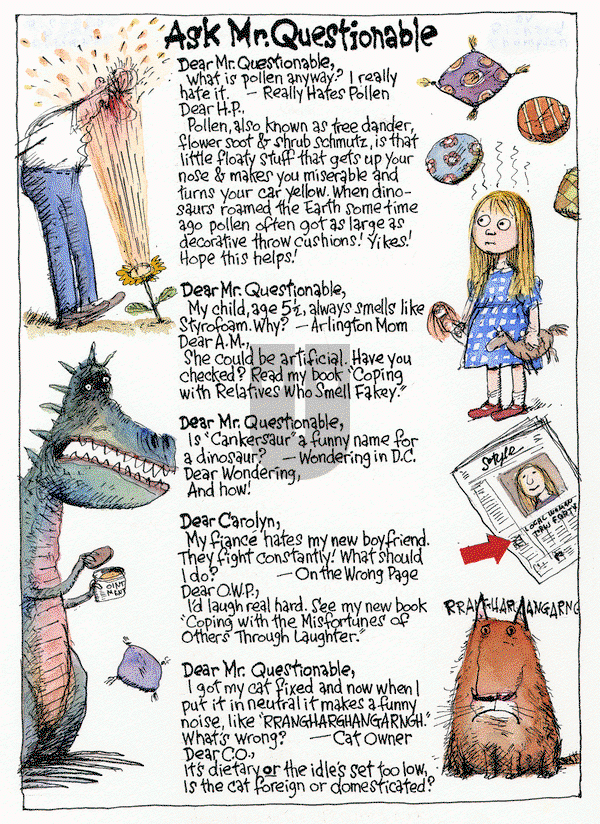 Ask Mr. Questionable
BY
Richard
Thompson
Dear Mr. Questionable,
What is pollen anyway? I really
hate it. — Really Hates Pollen
Dear H.P.,
Pollen, also known as tree dander,
flower soot & shrub schmutz, is that
little floaty stuff that gets up your
nose & makes you miserable and
turns your car yellow. When dino-
saurs roamed the Earth some time
ago pollen often got as large as
decorative throw cushions! Yikes!
Hope this helps!
Dear Mr. Questionable,
My child, age 5½, always smells like
Styrofoam. Why? — Arlington Mom
Dear A.M.,
She could be artificial. Have you
checked? Read my book "Coping
with Relatives Who Smell Fakey."
Dear Mr. Questionable,
Is "Cankersaur" a funny name for
a dinosaur? — Wondering in D.C.
Dear Wondering,
And how!
Dear Carolyn,
My fiancé hates my new boyfriend.
They fight constantly! What should
I do? — On the Wrong Page
Dear O.W.P.,
I'd laugh real hard. See my new book
"Coping with the Misfortunes of
Others Through Laughter."
Dear Mr. Questionable,
I got my cat fixed and now when I
put it in neutral it makes a funny
noise, like "RRANGHARGHANGARNGH."
What's wrong? — Cat Owner
Dear C.O.,
It's dietary or the idle's set too low,
Is the cat foreign or domesticated?
OINT
MENT
Style
LOCAL WOMAN
NOW FORTY